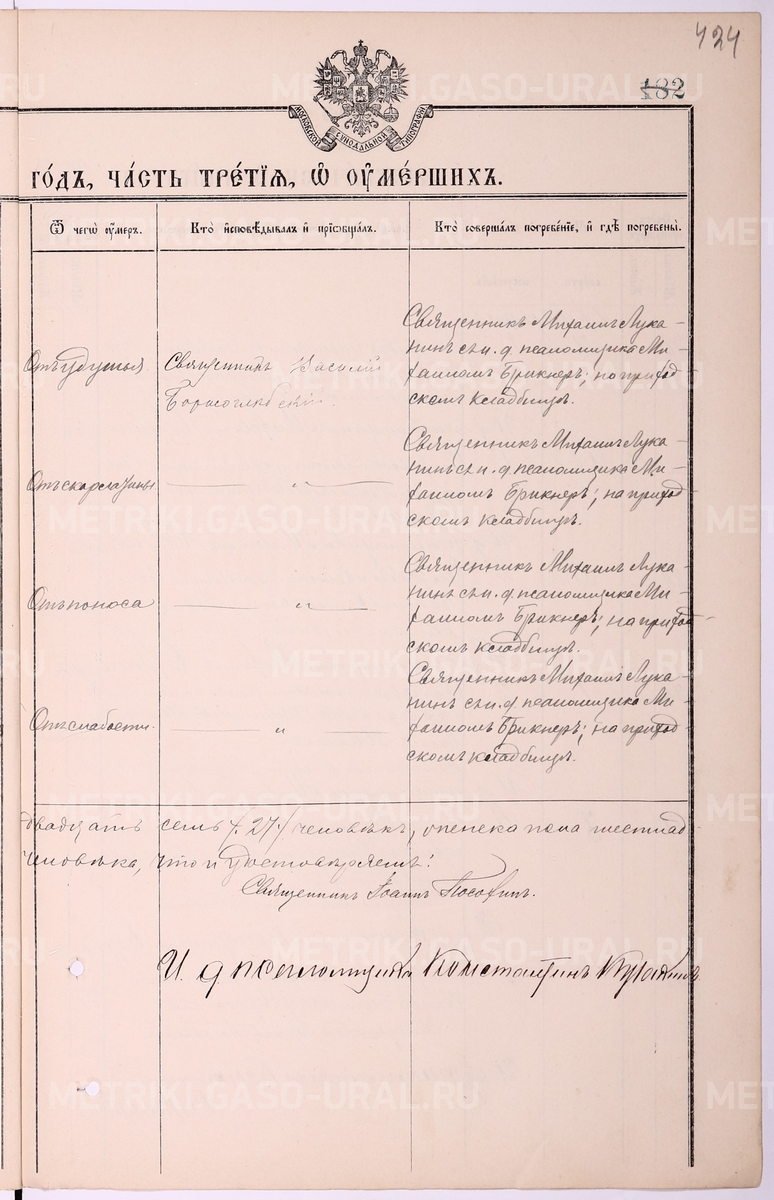 424
182
МОСКОВСКОЙ СѴНОДАЛЬНОЙ ТИПОГРАФІИ
ГОДЪ, ЧАСТЬ ТРЕТІЯ, Ѿ ОУМЕРШИХЪ.
Ѿ чегѡ оумеръ.
Кто исповѣдывалъ и пріѡбщалъ.
Кто совершалъ погребеніе, и гдѣ погребены.
Отъ удушья
Священникъ Василій
Борисоглебскій.
Священникъ Михаилъ Лука-
нинъ съ и. д. псаломщика Ми-
хаиломъ Брикнеръ; на приход-
скомъ кладбищѣ.
Отъ скарлатины
— „ —
Священникъ Михаилъ Лука-
нинъ съ и. д. псаломщика Ми-
хаиломъ Брикнеръ; на приход-
скомъ кладбищѣ.
Отъ поноса
— „ —
Священникъ Михаилъ Лука-
нинъ съ и. д. псаломщика Ми-
хаиломъ Брикнеръ; на приход-
скомъ кладбищѣ.
Отъ слабости
— „ —
Священникъ Михаилъ Лука-
нинъ съ и. д. псаломщика Ми-
хаиломъ Брикнеръ; на приход-
скомъ кладбищѣ.
двадцать семь /. 27 ./ человѣкъ, женска пола шестнад-
человѣка, что и удостовѣряемъ:
Священникъ Іоаннъ
И. д псаломщика Константинъ
METRIKI.GASO-URAL.RU